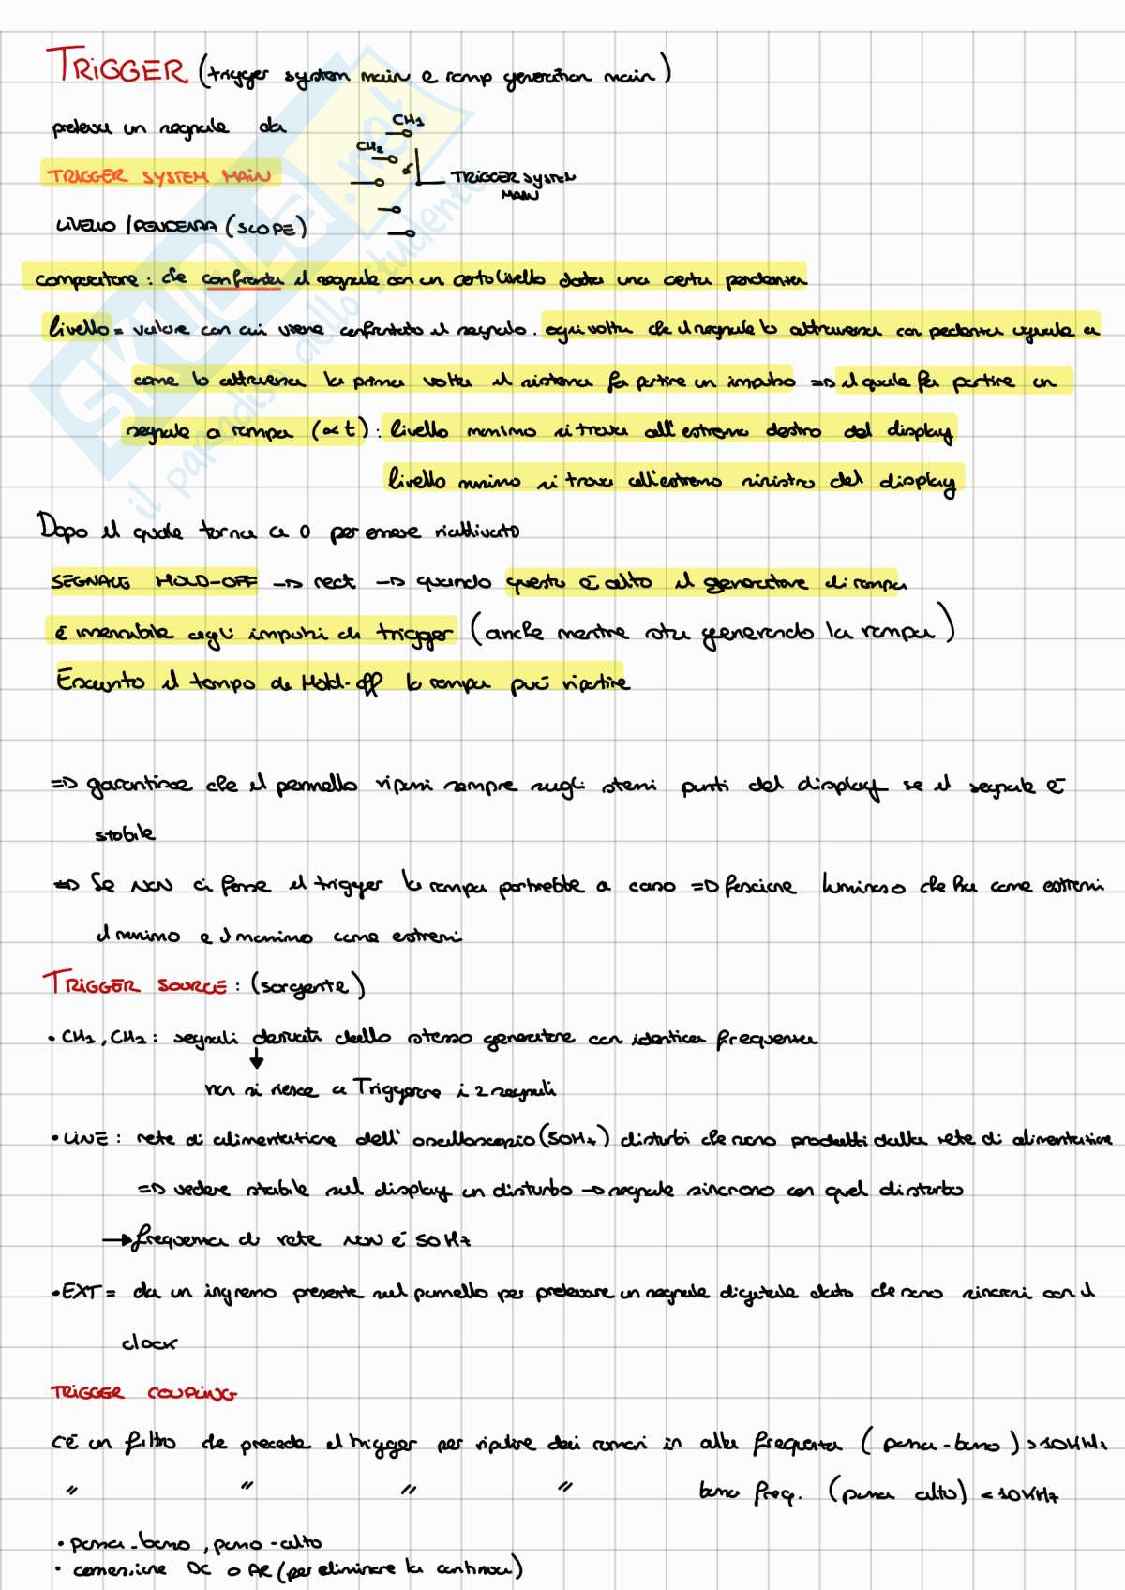 TRIGGER (trigger system main e ramp generation main)
preleva un segnale da
CH1
CH2
TRIGGER SYSTEM MAIN
TRIGGER SYSTEM
MAIN
LIVELLO / PENDENZA (SCOPE)
comparatore: che confronta il segnale con un certo livello data una certa pendenza
livello = valore con cui viene confrontato il segnale. ogni volta che il segnale lo attraversa con pendenza uguale a
come lo attraversa la prima volta il sistema fa partire un impulso => il quale fa partire un
segnale a rampa (∝ t): livello massimo si trova all'estremo destro del display
livello minimo si trova all'estremo sinistro del display
Dopo il quale torna a 0 per essere riattivato
SEGNALE HOLD-OFF -> rect -> quando questo è alto il generatore di rampa
è insensibile agli impulsi di trigger (anche mentre sta generando la rampa)
Esaurito il tempo di Hold-off la rampa può ripartire
=> garantisce che il pennello ripassi sempre sugli stessi punti del display se il segnale è
stabile
=> Se NON ci fosse il trigger la rampa partirebbe a caso => fascione luminoso che ha come estremi
il minimo e il massimo come estremi
TRIGGER SOURCE: (sorgente)
• CH1, CH2: segnali derivati dallo stesso generatore con identica frequenza
non si riesce a Triggerare i 2 segnali
• LINE: rete di alimentazione dell'oscilloscopio (50Hz) disturbi che sono prodotti dalla rete di alimentazione
=> vedere stabile sul display un disturbo -> segnale sincrono con quel disturbo
→ frequenza di rete NON è 50Hz
• EXT = da un ingresso presente sul pannello per prelevare un segnale digitale dato che sono sincroni con il
clock
TRIGGER COUPLING
C'è un filtro che precede il trigger per ripulire dai rumori in alta frequenza (passa-basso) > 10KHz
" " " " bassa freq. (passa alto) < 10KHz
• passa-basso, passo-alto
• connessione DC o AC (per eliminare la continua)
il paradiso dello studente
SKUOLA.net